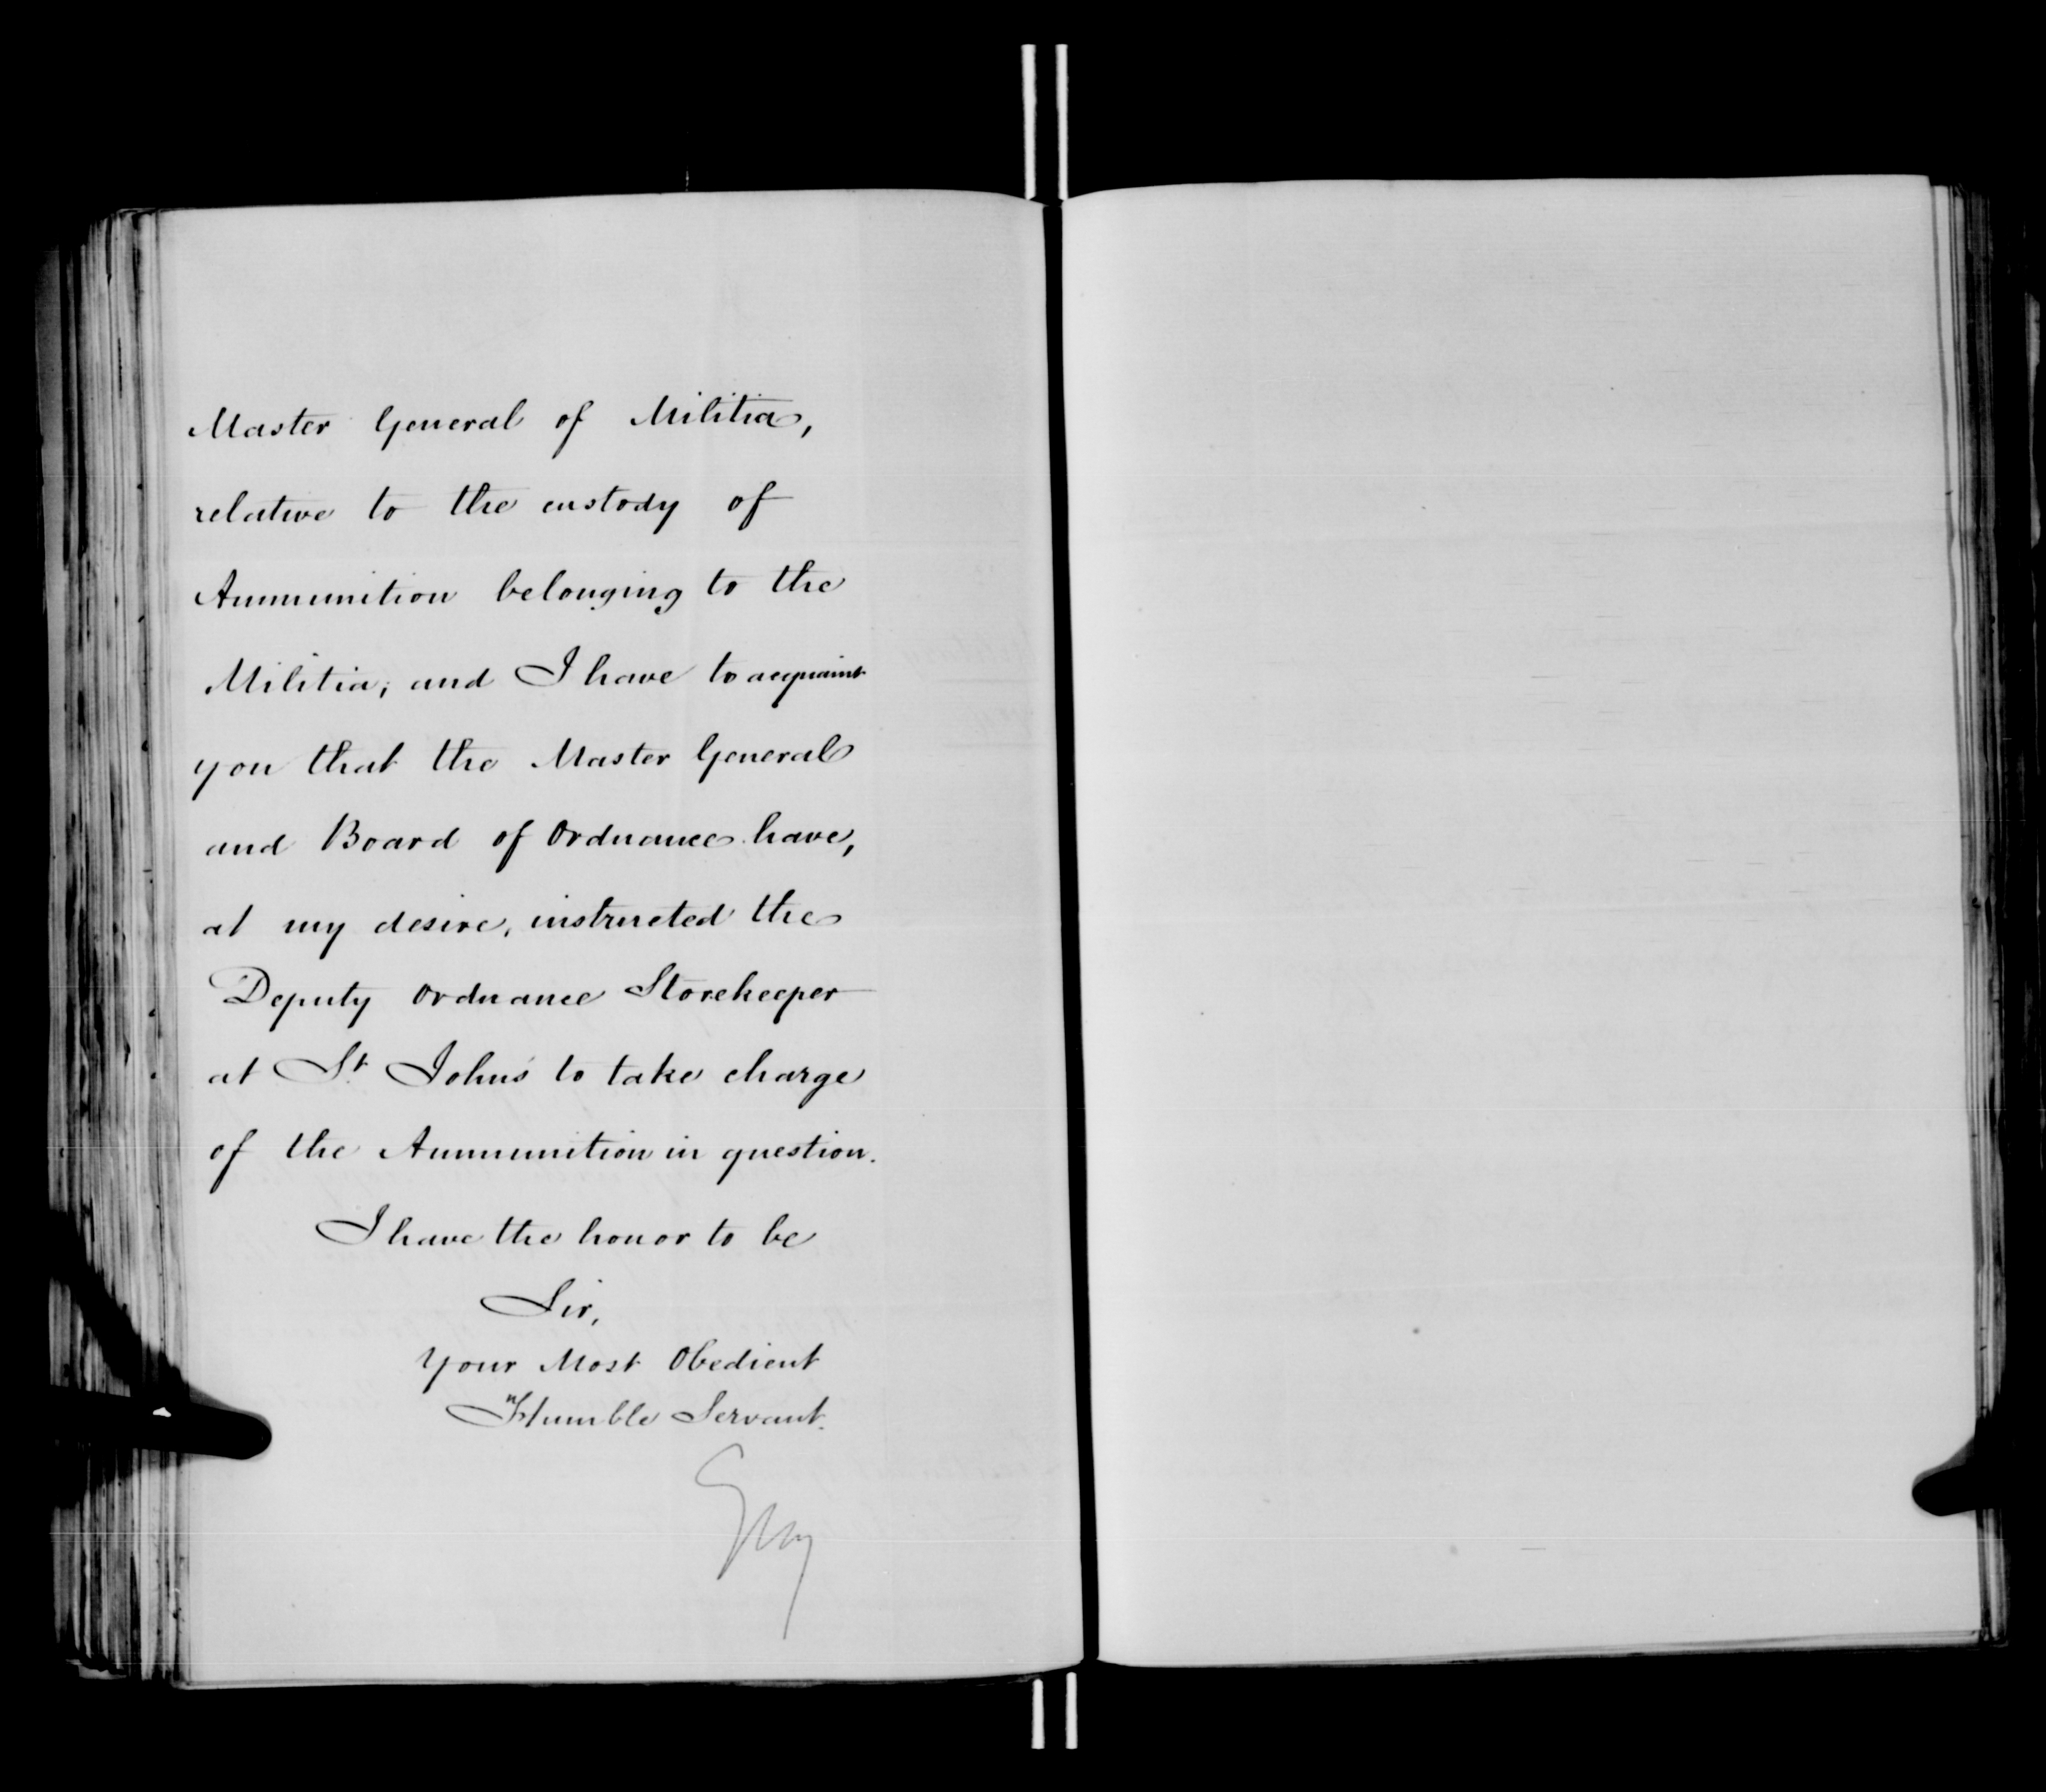 Master General of Militia,
relative to the custody of
Ammunition belonging to the
Militia; and I have to acquaint
you that the Master General
and Board of Ordnance have,
at my desire, instructed the
Deputy Ordnance Storekeeper
at St Johns to take charge
of the Ammunition in question.
I have the honor to be
Sir,
Your Most Obedient
Humble Servant.